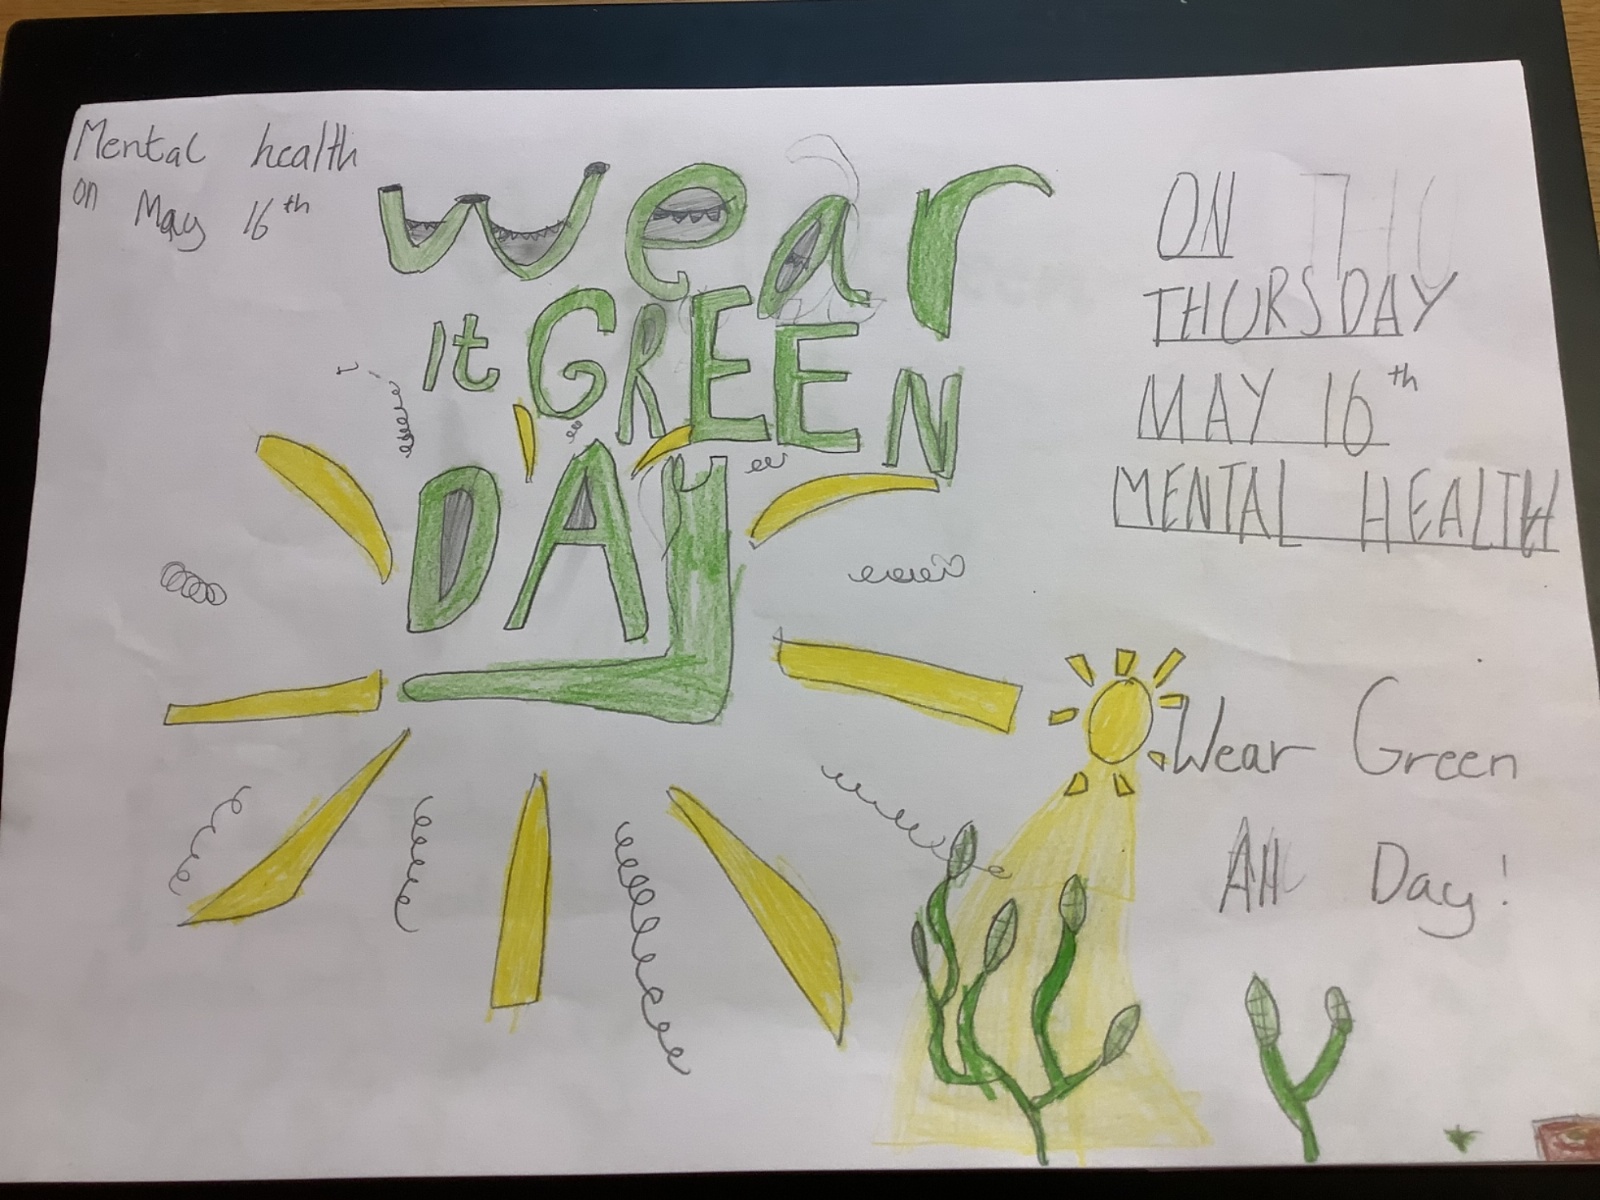 Mental health
on May 16th
Wear
It GREEN
DAY
ON
THURSDAY
MAY 16th
MENTAL HEALTH
Wear Green
All Day!